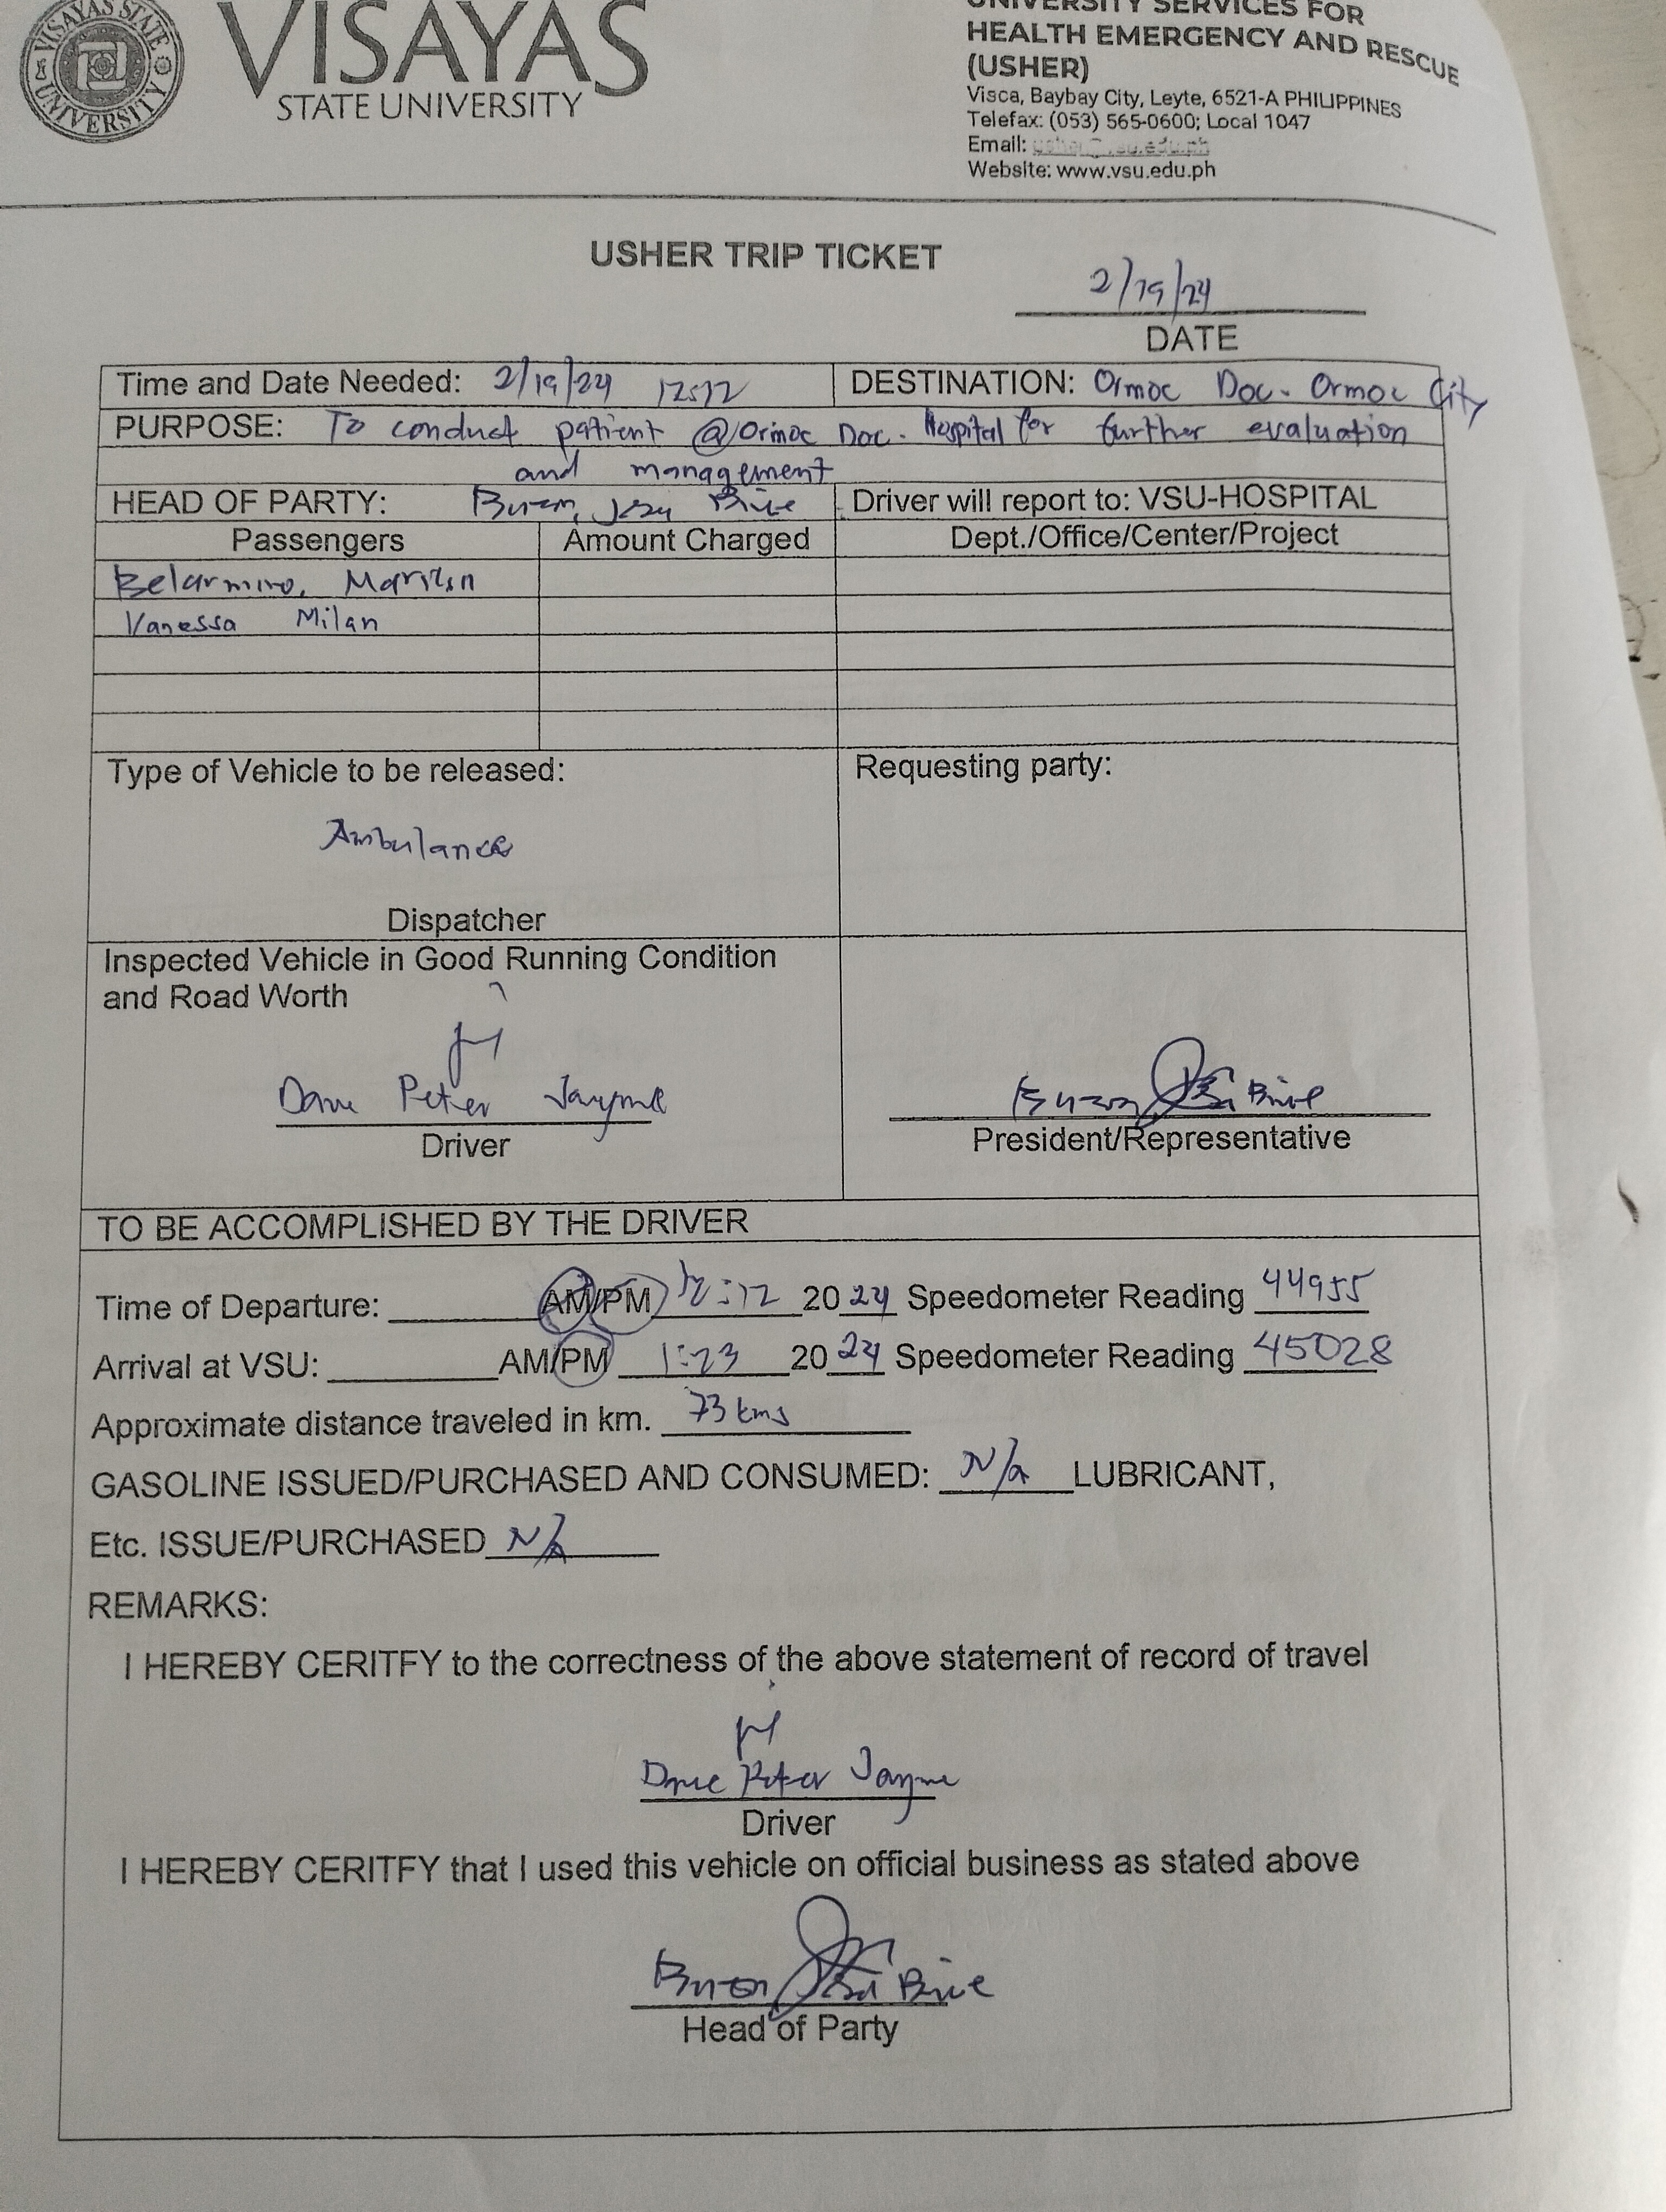 VISAYAS STATE UNIVERSITY
VISAYAS
STATE UNIVERSITY
UNIVERSITY SERVICES FOR
HEALTH EMERGENCY AND RESCUE
(USHER)
Visca, Baybay City, Leyte, 6521-A PHILIPPINES
Telefax: (053) 565-0600; Local 1047
Email:
Website: www.vsu.edu.ph
USHER TRIP TICKET
2/19/24
DATE
Time and Date Needed: 2/19/24 12:12 DESTINATION: Ormoc Doc. Ormoc City
PURPOSE: To conduct patient @ Ormoc Doc. Hospital for further evaluation
and management
HEAD OF PARTY: Driver will report to: VSU-HOSPITAL
Passengers Amount Charged Dept./Office/Center/Project
Belarmino,
Vanessa Milan
Type of Vehicle to be released: Requesting party:
Ambulance
Dispatcher
Inspected Vehicle in Good Running Condition
and Road Worth
Dave Peter Jayme
Driver
President/Representative
TO BE ACCOMPLISHED BY THE DRIVER
Time of Departure: AM/PM 12:12 2024 Speedometer Reading 44955
Arrival at VSU: AM/PM 1:23 2024 Speedometer Reading 45028
Approximate distance traveled in km. 73 kms
GASOLINE ISSUED/PURCHASED AND CONSUMED: N/a LUBRICANT,
Etc. ISSUE/PURCHASED N/A
REMARKS:
I HEREBY CERITFY to the correctness of the above statement of record of travel
Dave Peter Jayme
Driver
I HEREBY CERITFY that I used this vehicle on official business as stated above
Head of Party